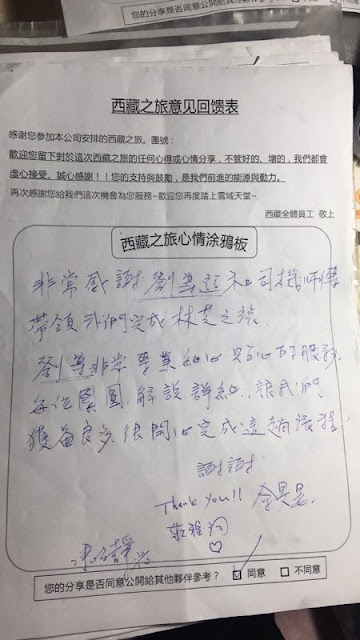 您的分享是否同意公開給其他夥
西藏之旅意见回馈表
感谢您参加本公司安排的西藏之旅。團號：
歡迎您留下對於這次西藏之旅的任何心得或心情分享，不管好的、壞的，我們都會
虛心接受、誠心感謝！！您的支持與鼓勵，是我們前進的能源與動力。
再次感謝您給我們這次機會為您服務~歡迎您再度踏上雪域天堂~
西藏全體員工 敬上
西藏之旅心情涂鴉板
非常感謝劉導遊和司機師傅
帶領我們完成林芝之旅.
劉導非常專業細心 貼心的服務
每位團員.解說詳細,讓我們
獲益良多 很開心完成這趟旅程
謝謝
Thank you!!
您的分享是否同意公開給其他夥伴參考？ ☑ 同意 □ 不同意